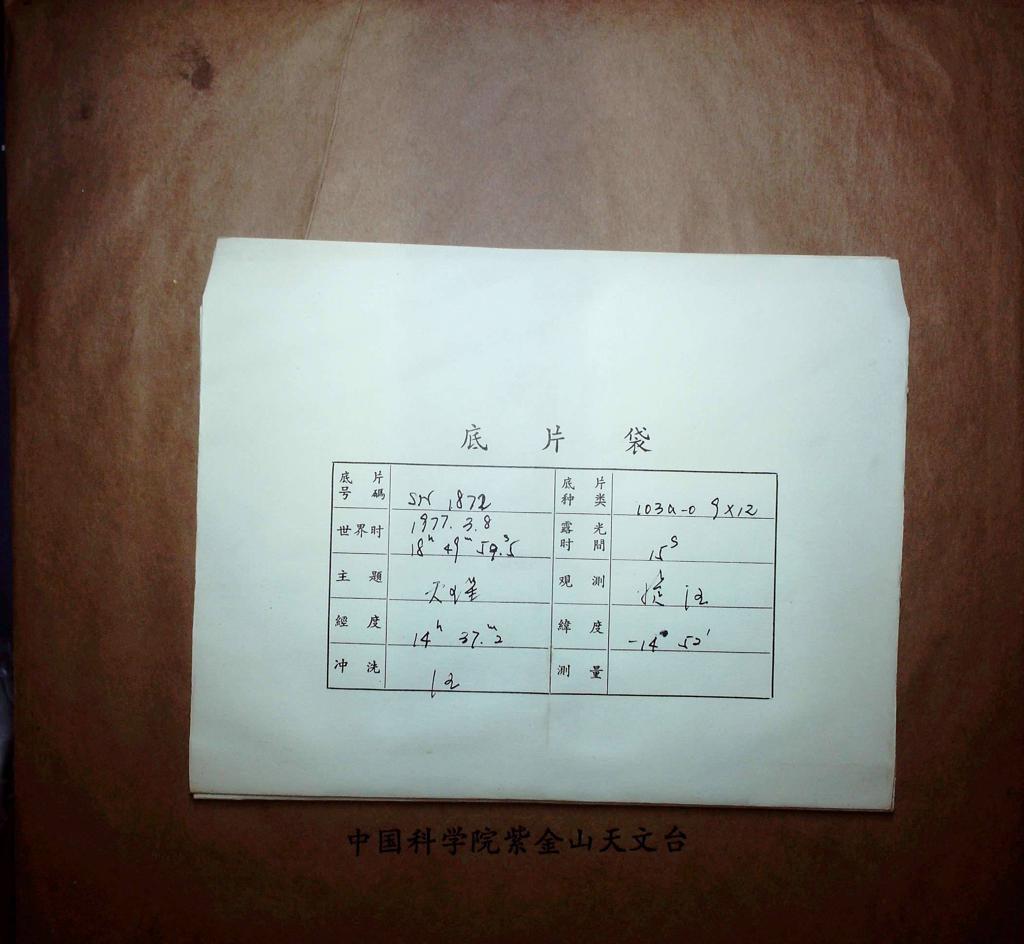 底 片 袋
底片号碼 SN 1872 底片种类 103a-0 9×12
世界时 1977. 3. 8 露光时間 15ˢ
18ʰ 49ᵐ 59.ˢ5
主題 观測
經度 14ʰ 37.ᵐ2 緯度 -14° 52′
冲洗 測量
中国科学院紫金山天文台